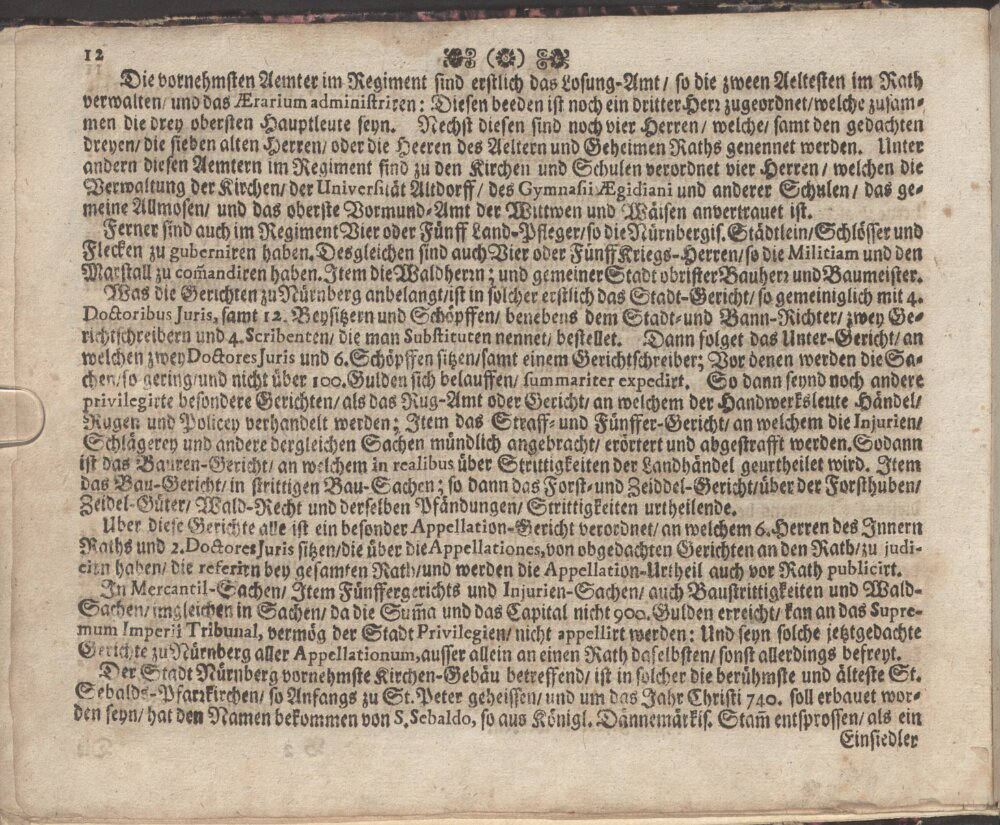 12
Die vornehmsten Aemter im Regiment sind erstlich das Losung-Amt/ so die zween Aeltesten im Rath
verwalten/ und das Ærarium administriren: Diesen beeden ist noch ein dritter Herr zugeordnet/welche zusam-
men die drey obersten Hauptleute seyn. Nechst diesen sind noch vier Herren/ welche/ samt den gedachten
dreyen/ die sieben alten Herren/ oder die Heeren des Aeltern und Geheimen Raths genennet werden. Unter
andern diesen Aemtern im Regiment sind zu den Kirchen und Schulen verordnet vier Herren/ welchen die
Verwaltung der Kirchen/ der Universität Altdorff/ des Gymnasii Ægidiani und anderer Schulen/ das ge-
meine Allmosen/ und das oberste Vormund-Amt der Wittwen und Wäisen anvertrauet ist.
Ferner sind auch im Regiment Vier oder Fünff Land-Pfleger/so die Nürnbergis. Städtlein/Schlösser und
Flecken zu guberniren haben. Desgleichen sind auch Vier oder Fünff Kriegs-Herren/so die Militiam und den
Marstall zu com̄andiren haben. Item die Waldherrn; und gemeiner Stadt obrister Bauherr und Baumeister.
Was die Gerichten zu Nürnberg anbelangt/ist in solcher erstlich das Stadt-Gericht/ so gemeiniglich mit 4.
Doctoribus Juris, samt 12. Beysitzern und Schöpffen/ benebens dem Stadt-und Bann-Richter/ zwey Ge-
richtschreibern und 4. Scribenten/ die man Substituten nennet/ bestellet. Dann folget das Unter-Gericht/ an
welchen zwey Doctores Juris und 6. Schöpffen sitzen/samt einem Gerichtschreiber; Vor denen werden die Sa-
chen/so gering/und nicht über 100. Gulden sich belauffen/ summariter expedirt. So dann seynd noch andere
privilegirte besondere Gerichten/ als das Rug-Amt oder Gericht/ an welchem der Handwerksleute Händel/
Rugen und Policey verhandelt werden; Item das Straff-und Fünffer-Gericht/ an welchem die Injurien/
Schlägerey und andere dergleichen Sachen mündlich angebracht/ erörtert und abgestrafft werden. Sodann
ist das Bauren-Gericht/ an welchem in realibus über Strittigkeiten der Landhändel geurtheilet wird. Item
das Bau-Gericht/ in strittigen Bau-Sachen; so dann das Forst-und Zeiddel-Gericht/über der Forsthuben/
Zeidel-Güter/ Wald-Recht und derselben Pfändungen/ Strittigkeiten urtheilende.
Uber diese Gerichte alle ist ein besonder Appellation-Gericht verordnet/ an welchem 6. Herren des Innern
Raths und 2. Doctores Juris sitzen/die über die Appellationes, von obgedachten Gerichten an den Rath/zu judi-
cirn haben/ die referirn bey gesamten Rath/und werden die Appellation-Urtheil auch vor Rath publicirt.
In Mercantil-Sachen/ Item Fünffergerichts und Injurien-Sachen/ auch Baustrittigkeiten und Wald-
Sachen/ ungleichen in Sachen/ da die Sum̄a und das Capital nicht 900. Gulden erreicht/ kan an das Supre-
mum Imperii Tribunal, vermög der Stadt Privilegien/ nicht appellirt werden: Und seyn solche jetztgedachte
Gerichte zu Nürnberg aller Appellationum, ausser allein an einen Rath daselbsten/ sonst allerdings befreyt.
Der Stadt Nürnberg vornehmste Kirchen-Gebäu betreffend/ ist in solcher die berühmste und älteste St.
Sebalds-Pfarrkirchen/ so Anfangs zu St. Peter geheissen/ und um das Jahr Christi 740. soll erbauet wor-
den seyn/ hat den Namen bekommen von S. Sebaldo, so aus Königl. Dännemärkis. Stam̄ entsprossen/ als ein
Einsiedler